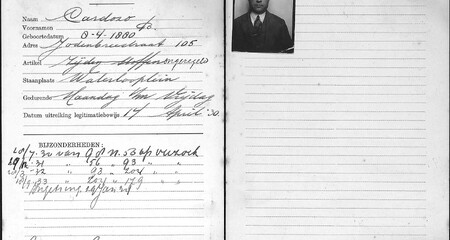 Naam Cardozo
Voornamen B.
Geboortedatum 8-4-1880
Adres Jodenbreestraat 105
Artikel Zijden Stoffen ongeregeld
Staanplaats Waterlooplein
Gedurende Maandag t/m Vrijdag
Datum uitreiking legitimatiebewijs 17 April '30.
BIJZONDERHEDEN:
7.30 van 98 n. 53 op verzoek
31 " 56 " 93
32 " 93 " 204
33 " 204 " 179